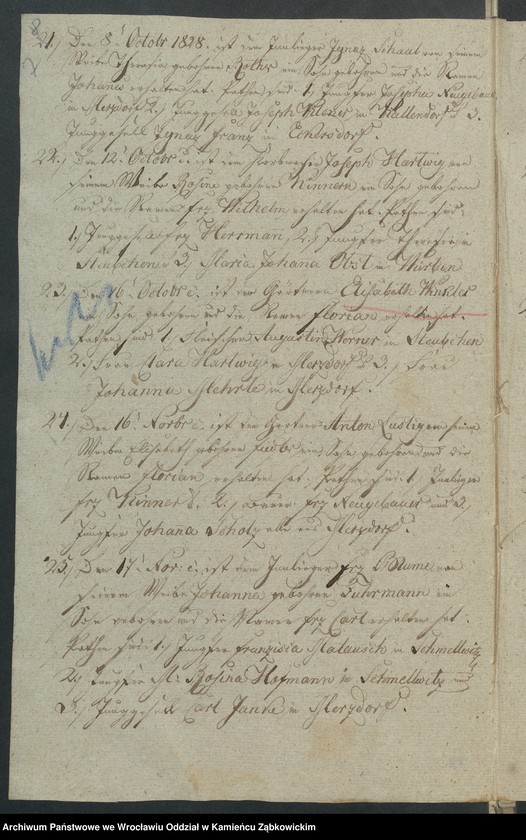 21.) Den 8 Octobr 1828. ist dem Inlieger Ignaz Schaal von seinem
Weibe Theresia gebohrne Rother ein Sohn gebohren und die Namen
Johannes erhalten hat. Pathen sind: 1. Jungfer Josepha Neugebauer
in Merzdorf 2.) Junggesell Joseph in Kallendorf u 3.
Junggesell Ignaz Franz in Endersdorf.
22.) Den 12 Octobr c. ist dem Joseph Hartwig von
seinem Weibe Rosina gebohrne Kinnern ein Sohn gebohren
und die Namen Frz Wilhelm erhalten hat. Pathen sind:
1.) Junggesell Herrman, 2.) Jungfer Theresia in
Steubchen 3.) Maria Johana Obst in Würben
23.) Den 16 Octobr c. ist der Gärtnerin Elisabeth Winkler
ein Sohn gebohren und die Namen Florian erhalten hat.
Pathen sind 1.) Augustin Körner in Steubchen
2.) Frau Clara Hartwig in Merzdorf u 3.) Frau
Johanna in Merzdorf.
24.) Den 16 Novbr c. ist dem Gärtner Anton Ludwig von seinem
Weibe Elisabeth gebohrne ein Sohn gebohren und die
Namen Florian erhalten hat. Pathen sind: 1.) Inlieger
Frz Kinner, 2.) Bauer Frz Neugebauer und 3)
Jungfer Johana Scholz alle aus Merzdorf.
25.) Den 17 Nov c. ist dem Inlieger Frz Blume von
seinem Weibe Johanna gebohrne Fuhrmann ein
Sohn gebohren und die Namen Frz Carl erhalten hat.
Pathen sind: 1.) Jungfer Franzisca in Schmellwitz
2.) Jungfer M: Rosina Hofmann in Schmellwitz und
3.) Junggesell Carl Janke in Merzdorf.
Archiwum Państwowe we Wrocławiu Oddział w Kamieńcu Ząbkowickim